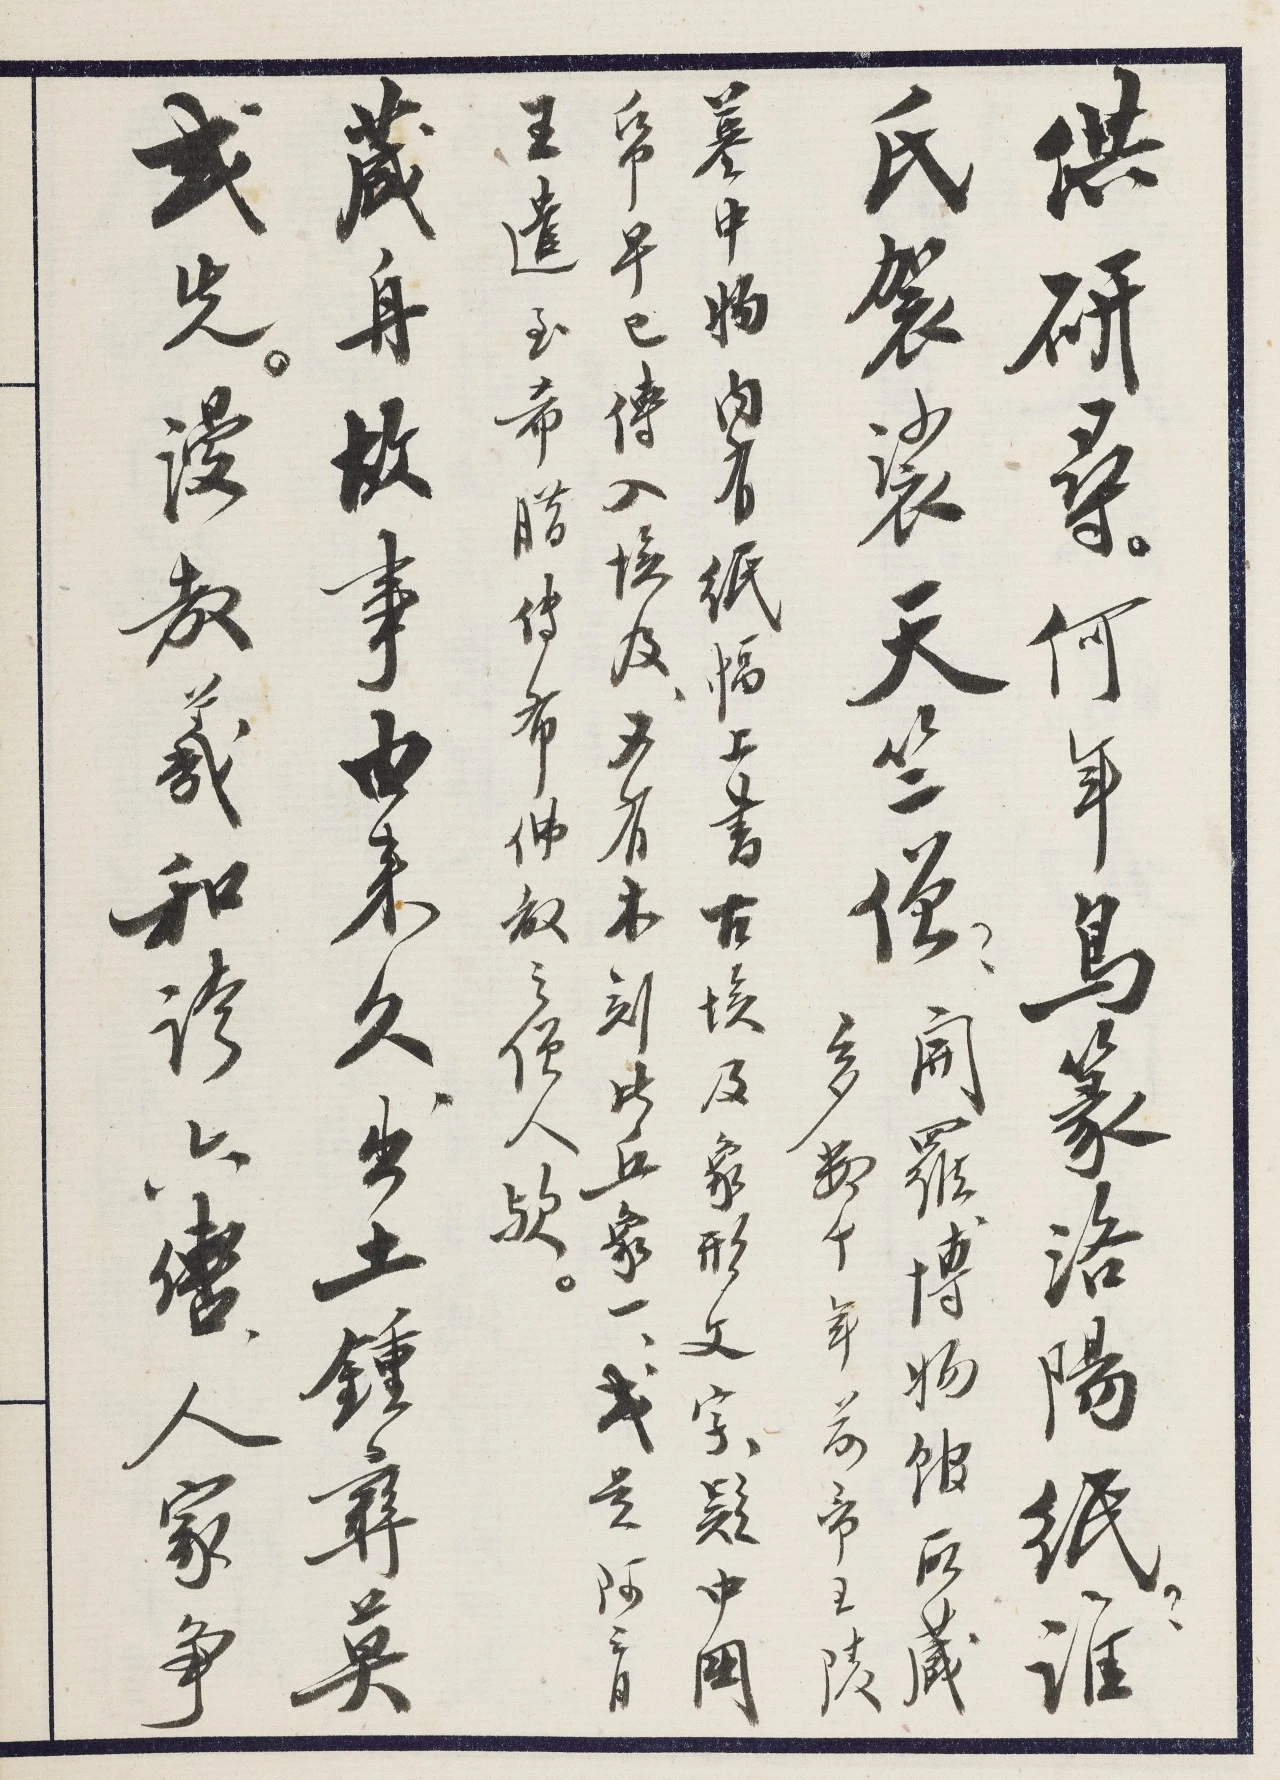 供研尋。何年鳥篆洛陽紙？誰
氏袈裟天竺僧？
開羅博物館所藏
多數千年前帝王陵
墓中物內有紙幅上書古埃及象形文字、疑中國
帋早已傳入埃及、又有木刻比丘象一、或是阿育
王遣至希腊傳布佛教之僧人歟。
藏舟故事由來久、出土鍾彝莫
或先。漫教羲和誇六轡、人家爭